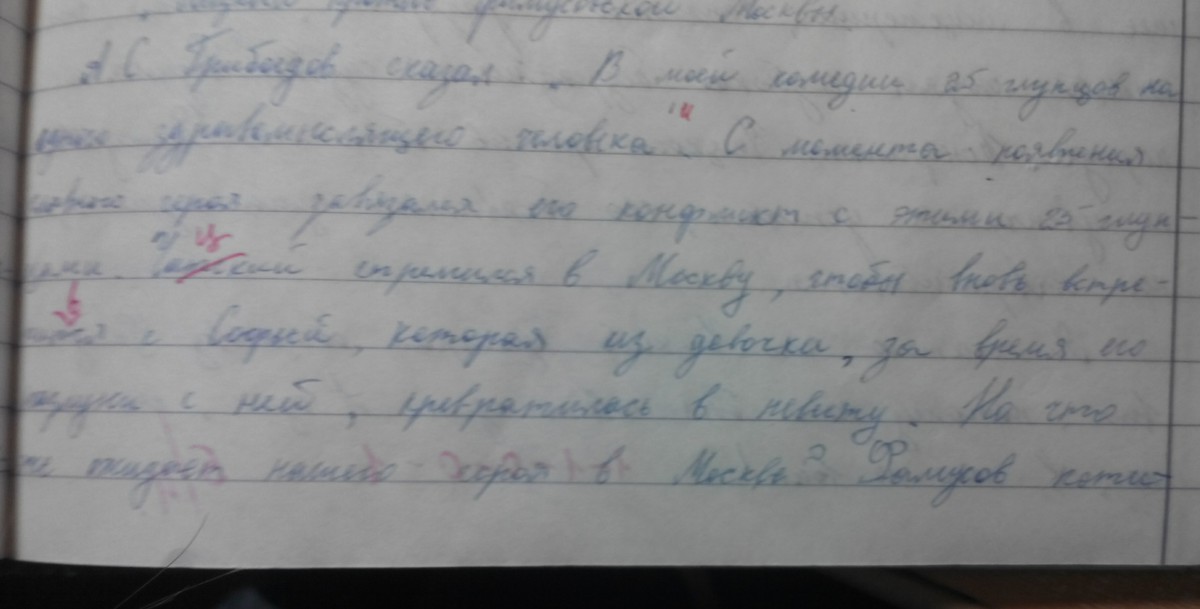 фамусовской Москвы.
А С Грибоедов сказал: „В моей комедии 25 глупцов на
одного здравомыслящего человека". С момента появления
героя завязался его конфликт с этими 25 глуп-
цами. стремился в Москву, чтобы вновь встре-
с Софьей, которая из девочки, за время его
разлуки с ней, превратилось в невесту. Но что
же ожидает нашего героя в Москве? Фамусов